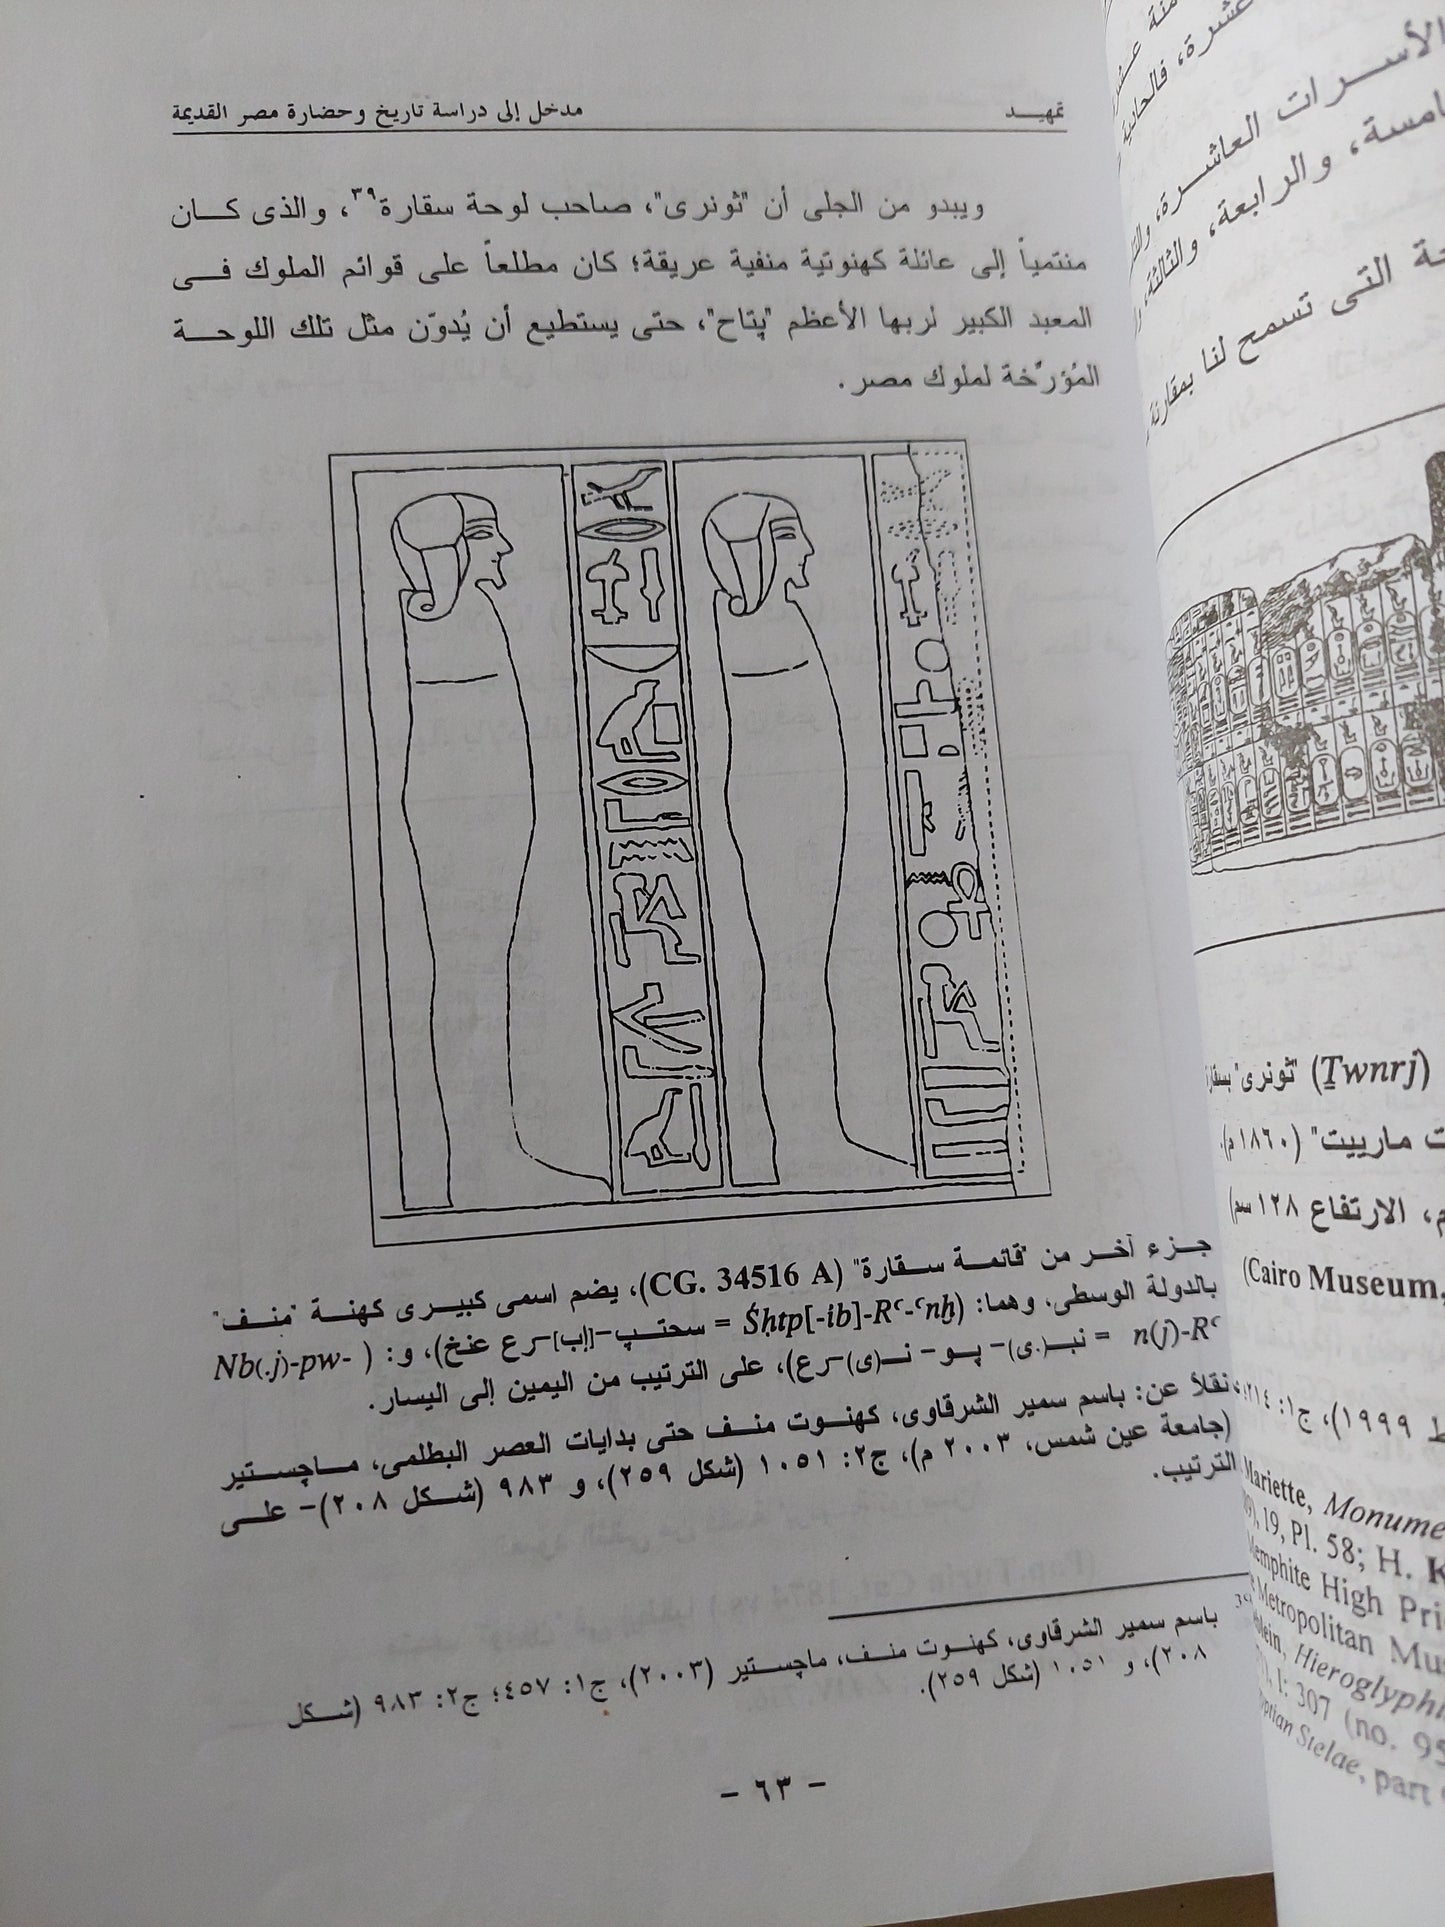 تمهيـــد
مدخل إلى دراسة تاريخ وحضارة مصر القديمة
ويبدو من الجلى أن "ثونرى"، صاحب لوحة سقارة٣٩، والذى كـــان
منتمياً إلى عائلة كهنوتية منفية عريقة؛ كان مطلعاً على قوائم الملوك فـــى
المعبد الكبير لربها الأعظم "پتاح"، حتى يستطيع أن يُدوّن مثل تلك اللوحـــة
المُؤرِّخة لملوك مصر.
جـــزء آخـــر من "قائمـــة سـقـارة" (CG. 34516 A)، يضم اسمى كبيـرى كهنـة "منـف"
بالدولة الوسطى، وهما: (Śḥtp[-ib]-Rʿ-ʿnḫ = سحتـپ-[إب]-رع عنخ)، و: (Nb(.j)-pw-
n(j)-Rʿ = نبـ(.ى)- پـو- نـ(ى)-رع)، على الترتيب من اليمين إلى اليسار.
نقلاً عن: باسم سمير الشرقاوى، كهنوت منـف حتى بدايات العصر البطلمى، مـاچسـتير
(جامعة عين شمس، ٢٠٠٣ م)، ج٢: ١٠٥١ (شكل ٢٥٩)، و ٩٨٣ (شـكل ٢٠٨)- علـى
الترتيب.
٣٩ باسم سمير الشرقاوى، كهنـوت منـف، ماچسـتير (٢٠٠٣)، ج١: ٤٥٧؛ ج٢: ٩٨٣ (شـكل
٢٠٨)، و ١٠٥١ (شكل ٢٥٩).
- ٦٣ -
عشرة، فالحادية
الأســرات العاشـرة،
والرابعة، والثالثة،
التى تسمح لنا بمقارنة
(Ṯwnrj) "ثونرى" بسقارة
مارييت" (١٨٦٠ م).
الارتفاع ١٢٨ سم)
(Cairo Museum,
١٩٩٩)، ج١: ٢١٤
Mariette, Monume
19, Pl. 58; H. K
Memphite High Pri
Metropolitan Mu
Hieroglyphi
I: 307 (no. 95
Stelae, part